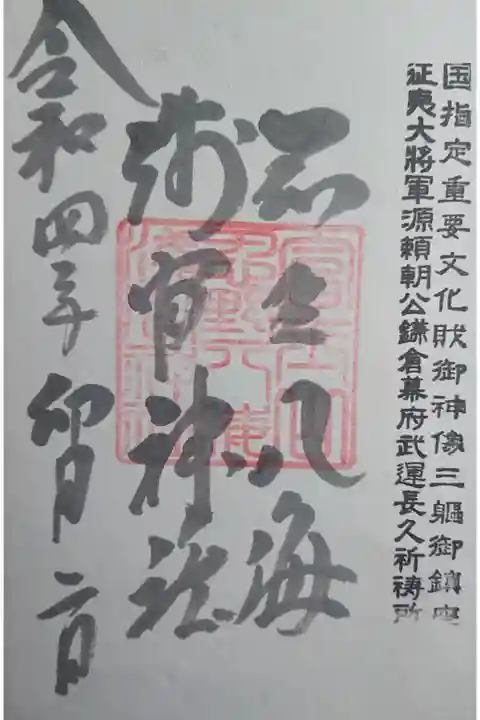 国指定重要文化財御神像三軀御鎮座
征夷大將軍源頼朝公鎌倉幕府武運長久祈祷所
忍野八海
浅間神社
令和四年卯月二日